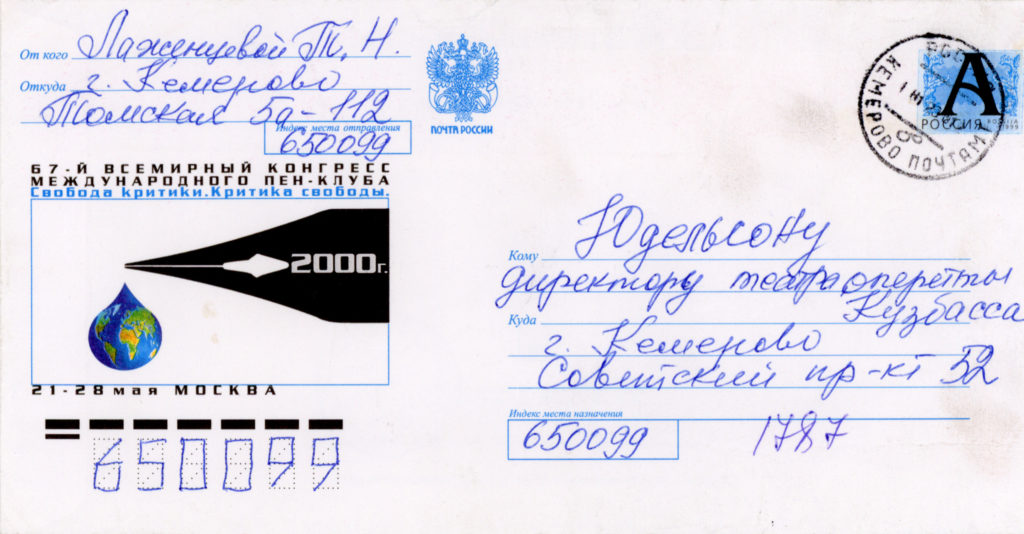 От кого Лаженцевой Т. Н.
Откуда г. Кемерово
Томская 5а-112
Индекс места отправления
650099
ПОЧТА РОССИИ
67-Й ВСЕМИРНЫЙ КОНГРЕСС
МЕЖДУНАРОДНОГО ПЕН-КЛУБА
Свобода критики.Критика свободы.
2000г.
21-28 мая МОСКВА
650099
А
РОССИЯ
КЕМЕРОВО ПОЧТАМ
Кому Юдельсону
директору театра оперетты
Кузбасса
Куда
г. Кемерово
Советский пр-кт 52
Индекс места назначения
650099
1787